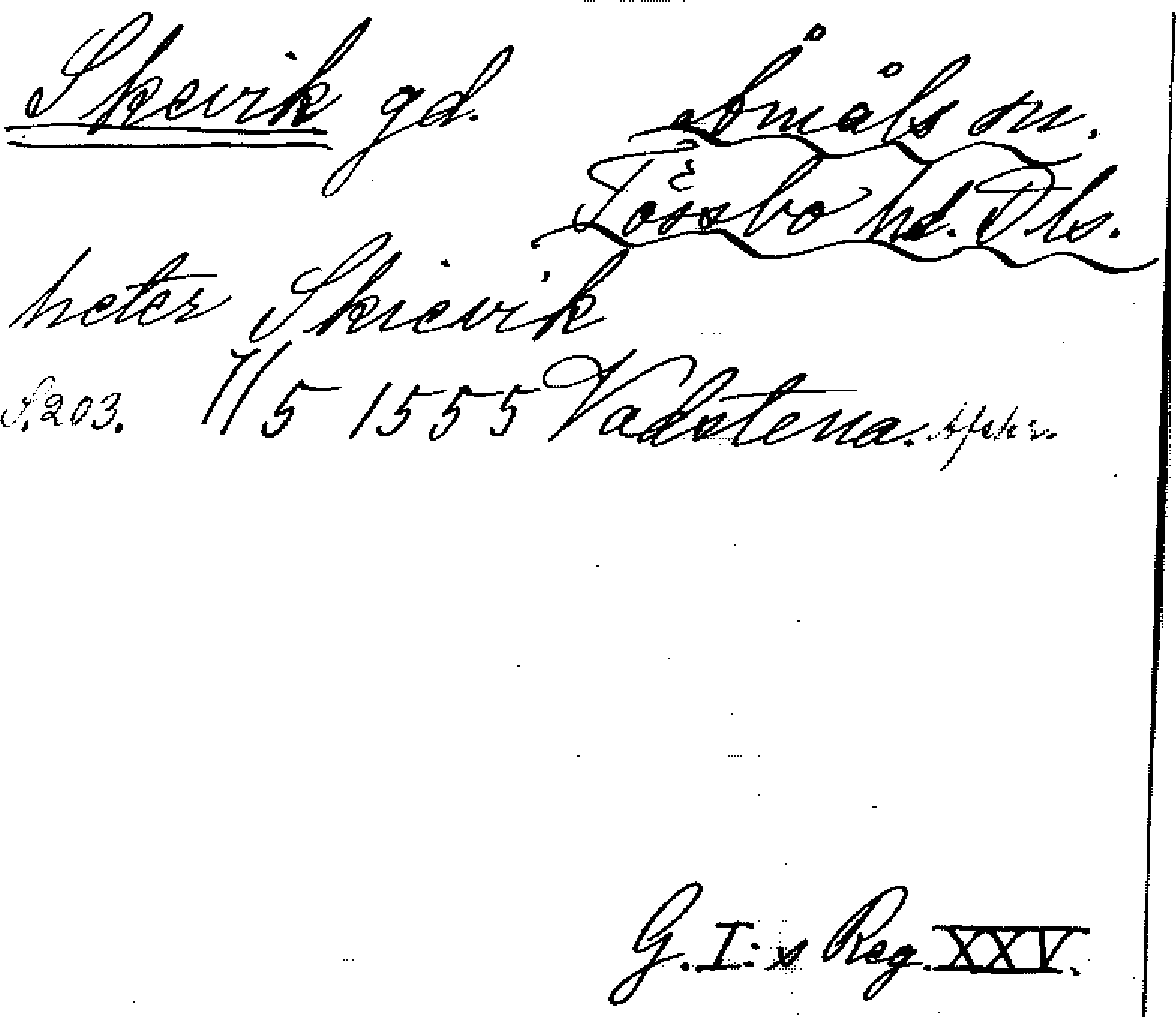 Skevik gd. Åmåls sn.
Tössbo hd. Dls.
heter Skievik
S. 203. 7/5 1555 Vadstena. Afskr.
G. I:s Reg. XXV.